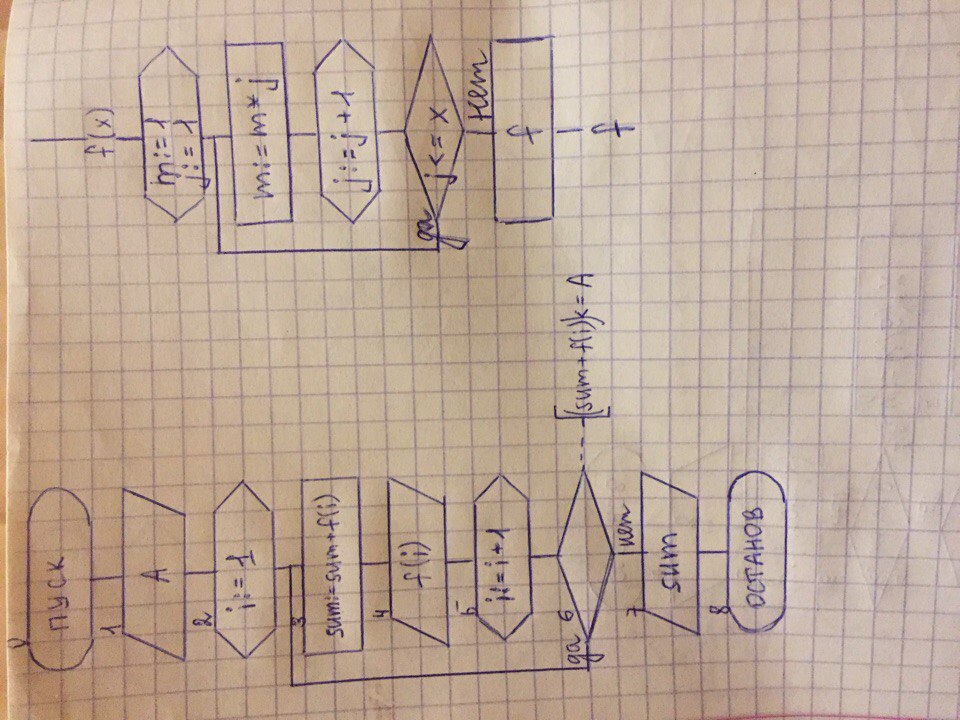 0
ПУСК
1
A
2
i:=1
3
sum:=sum+f(i)
4
f(i)
5
i:=i+1
6
да
нет
(sum+f(i))<=A
7
sum
8
ОСТАНОВ
f(x)
m:=1
j:=1
m:=m*j
j:=j+1
j<=x
да
нет
f
f